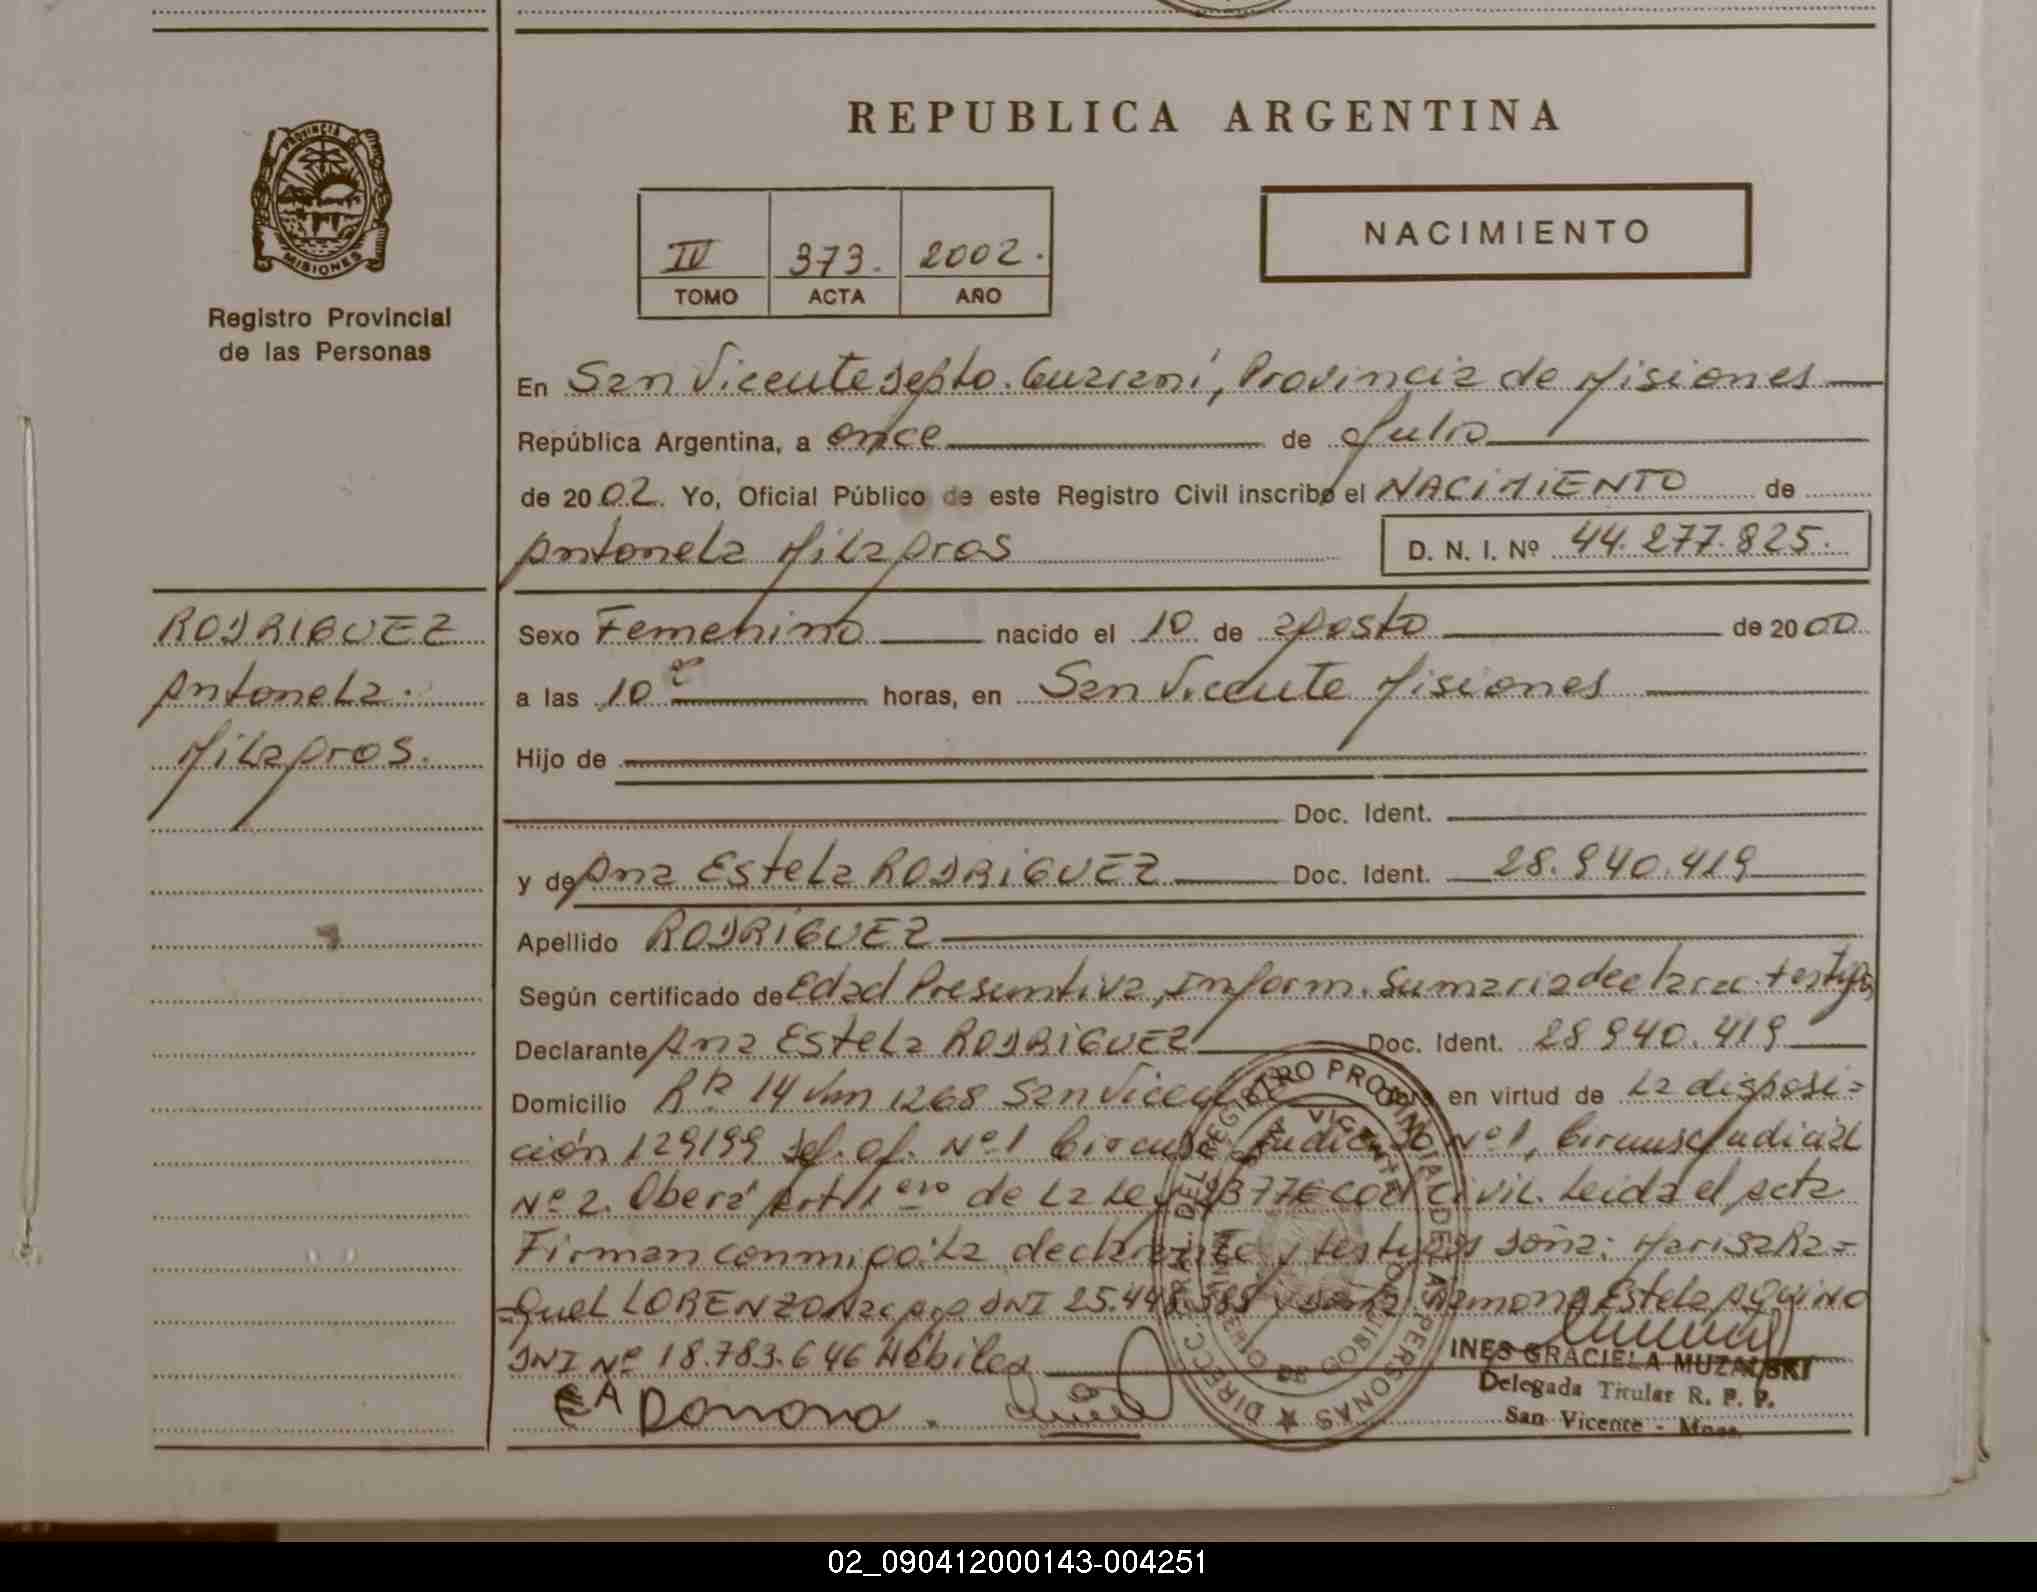 REPUBLICA ARGENTINA
PROVINCIA DE
MISIONES
Registro Provincial
de las Personas
IV 373. 2002.
TOMO ACTA AÑO
NACIMIENTO
En San Vicente Depto. Guaraní, Provincia de Misiones
República Argentina, a once de Julio
de 2002. Yo, Oficial Público de este Registro Civil inscribo el NACIMIENTO de
Antonela Milagros D. N. I. Nº 44.277.825.
RODRIGUEZ
Antonela.
Milagros.
Sexo Femenino nacido el 10 de agosto de 2000
a las 10 horas, en San Vicente Misiones
Hijo de
Doc. Ident.
y de Ana Estela RODRIGUEZ Doc. Ident. 28.940.419
Apellido RODRÍGUEZ
Según certificado de Edad Presuntiva, Inform. Sumaria declarac. testigos
Declarante Ana Estela RODRIGUEZ Doc. Ident. 28.940.419
Domicilio 14 Km 1268 San Vicente en virtud de La disposi=
ción 129199 Nº 1 Nº 1, Circunsc Judicial
Nº 2. Oberá Art 1ero de La Ley Civil. Leida el acta
Firman conmigo: La declarante y testigos Doña: Marisa Ra=
=quel LORENZO DNI Ramona Estela AQUINO
DNI Nº 18.783.646 Hábiles
EA Ramona.
DIRECC. GRAL. DEL REGISTRO PROVINCIAL DE LAS PERSONAS
INES GRACIELA MUZALSKI
Delegada Titular R. P. P.
San Vicente - Mnes.
02_090412000143-004251